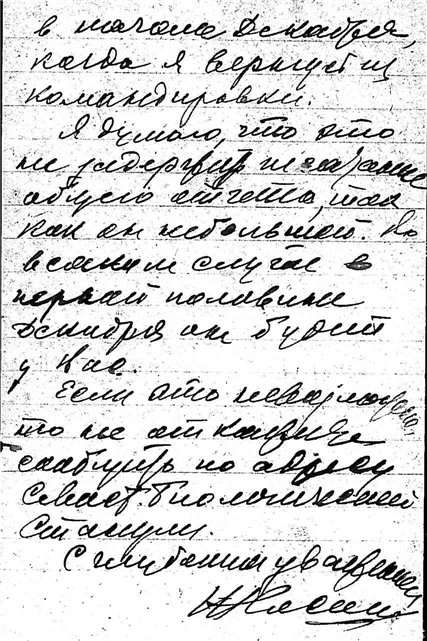 в начале Декабря,
когда я вернусь из
командировки.
Я думаю, что это
не задержит
общего отчета, так
как он небольшой. Во
всяком случае в
первой половине
Декабря он будет
у Вас.
Если это невозможно,
то не откажите
сообщить по адресу
Севаст. Биологической
Станции.
С глубоким уважением